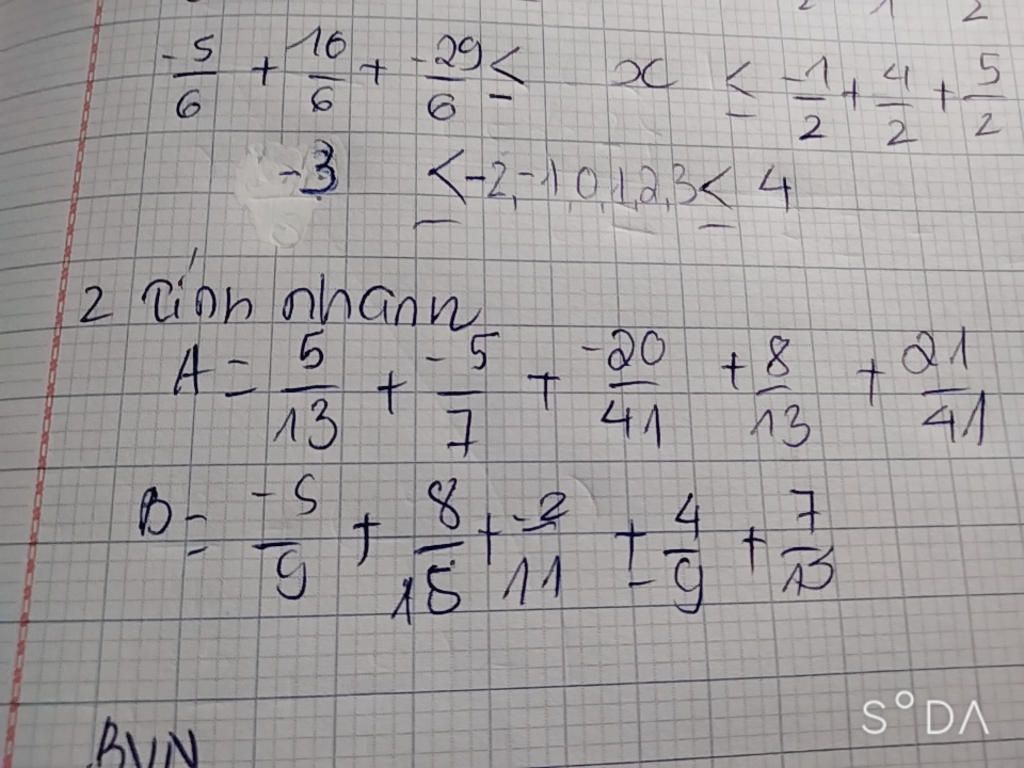 2 1 2
-5/6 + 16/6 + -29/6 ≤ x ≤ -1/2 + 4/2 + 5/2
-3 ≤ -2,-1,0,1,2,3 ≤ 4
2 Tính nhanh
A = 5/13 + -5/7 + -20/41 + 8/13 + 21/41
B = -5/9 + 8/15 + -2/11 + 4/-9 + 7/15
BVN
SODA